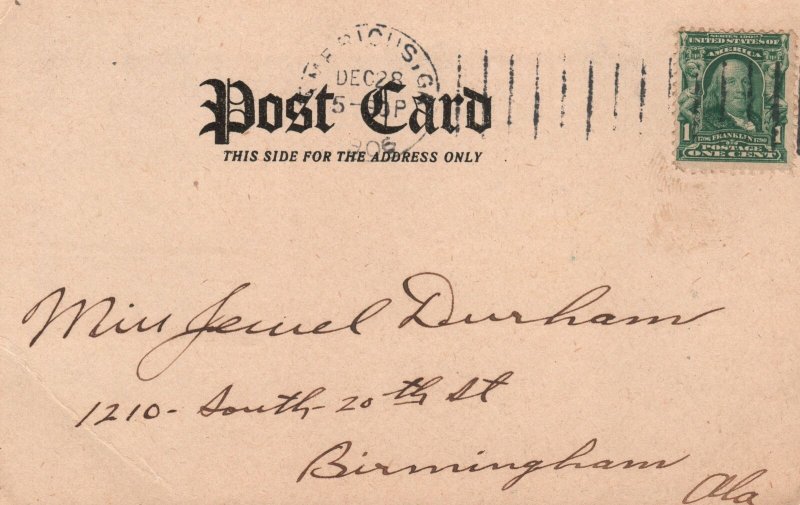 AMERICUS, GA.
DEC 28
5-30P
1906
Post Card
THIS SIDE FOR THE ADDRESS ONLY
SERIES 1902
UNITED STATES OF
AMERICA
1706 FRANKLIN 1790
1 POSTAGE 1
ONE CENT
Miss Jewel Durham
1210- South- 20th St
Birmingham
Ala